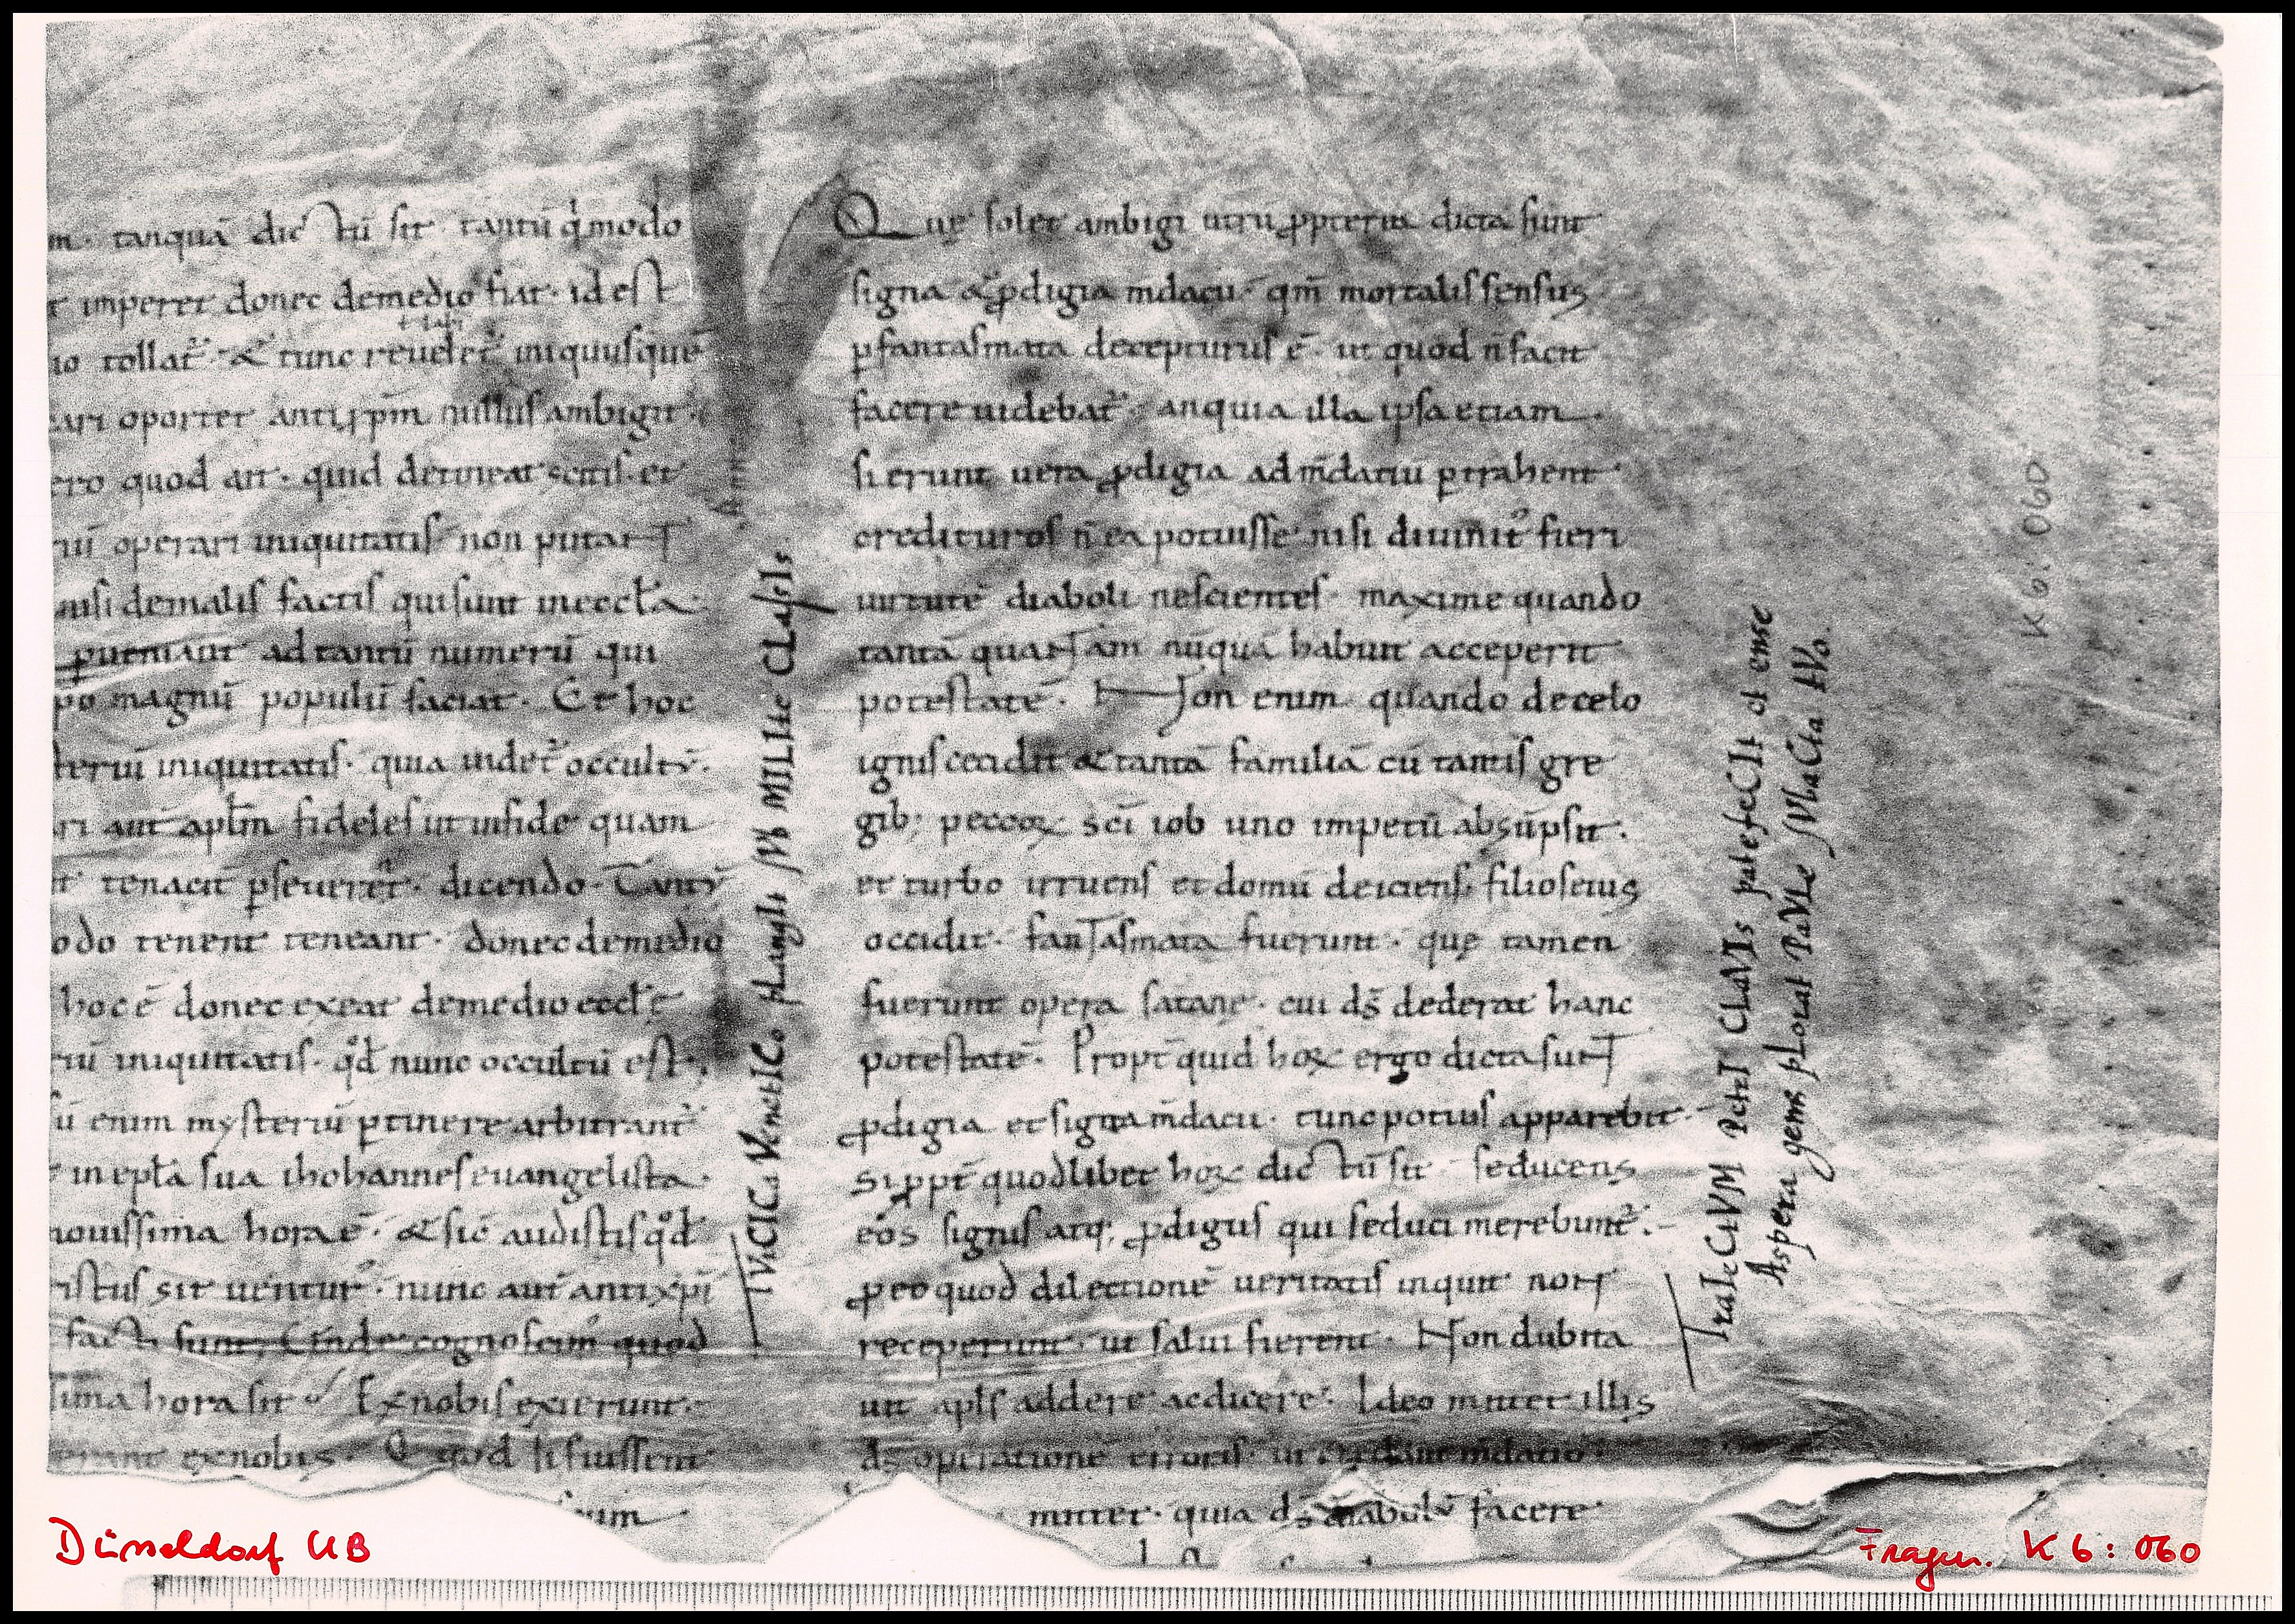 m. tanquā dictū sit tantū q̇modo
imperet donec demedio fiat. id est
io tollat̃. & tunc reueletᷣ iniquus quē
ari oportet antixp̄m nullus ambigit.
ero quod ait. quid detineat scitis. et
riū operari iniquitatis non putant
nisi demalis factis qui sunt inecc̄ła.
ꝑueniant ad tantū numerū qui
po magnū populū faciat. Et hoc
teriū iniquitatis. quia uidetᷣ occultū.
ri aut̄ apłm fideles ut infide quam
tenacit̄ ꝑseuerent. dicendo. Tantū
odo tenent teneant. donec demedio
hoc ē donec exeat demedio eccłę
riū iniquitatis. qd̄ nunc occultū est.
ū enim mysteriū ꝑtinere arbitrantᷣ
in epła sua ihohannes euangelista.
nouissima hora ē. & sic̄ audistis qd̄
istus sit uenturꝰ. nunc aut̄ antixp̄i
facti sunt; Unde cognoscimꝰ quod
sima hora sit Ex nobis exierunt.
erant exnobis. Qd̄ si fuissent
Quę solet ambigi utrū ꝓpterea dicta sunt
signa & ꝓdigia mdacii. qm̄ mortalis sensus
ꝑ fantasmata decepturus ē. ut quod ñ facit
facere uidebatᷣ. an quia illa ipsa etiam
si erunt uera ꝓdigia ad m̄daciū ꝑtrahent
credituros ñ ea potuisse nisi diuinitꝰ fieri
uirtutē diaboli nescientes. maxime quando
tantā quantam nūquā habuit acceperit
potestatē. Non enim quando decelo
ignis cecidit & tantā familiā cū tantis gre
gib; peccoꝝ sc̄i iob uno impetū absūpsit.
et turbo irruens et domū deiciens filios eius
occidit. fantasmata fuerunt. quę tamen
fuerunt opera satanę. cui ds̄ dederat hanc
potestatē. Propt̄ quid hoꝝ ergo dicta sunt
ꝓdigia et signa m̄dacii. tunc potius apparebit.
Si ꝓpt̄ quodlibet hoꝝ dictū sit seducens
eos signis atq; ꝓdigiis qui seduci merebuntᷣ.
ꝓeo quod dilectionē ueritatis inquit non
receperunt. ut salui fierent. Non dubita
uit apłs addere ac dicere. Ideo mittet illis
ds̄ operationē erroris. ut credant m̄dacio.
mittet. quia ds̄ diabolū facere
IVdICIa VenetICo pLangIt sVb MILIte CLassIs
TraIeCtVM PetrI CLaVIs patefeCIt et ense
Aspera gens pLorat PaVLe sVbaCta tVo.
K 6: 060
Düsseldorf UB
Fragm. K 6: 060